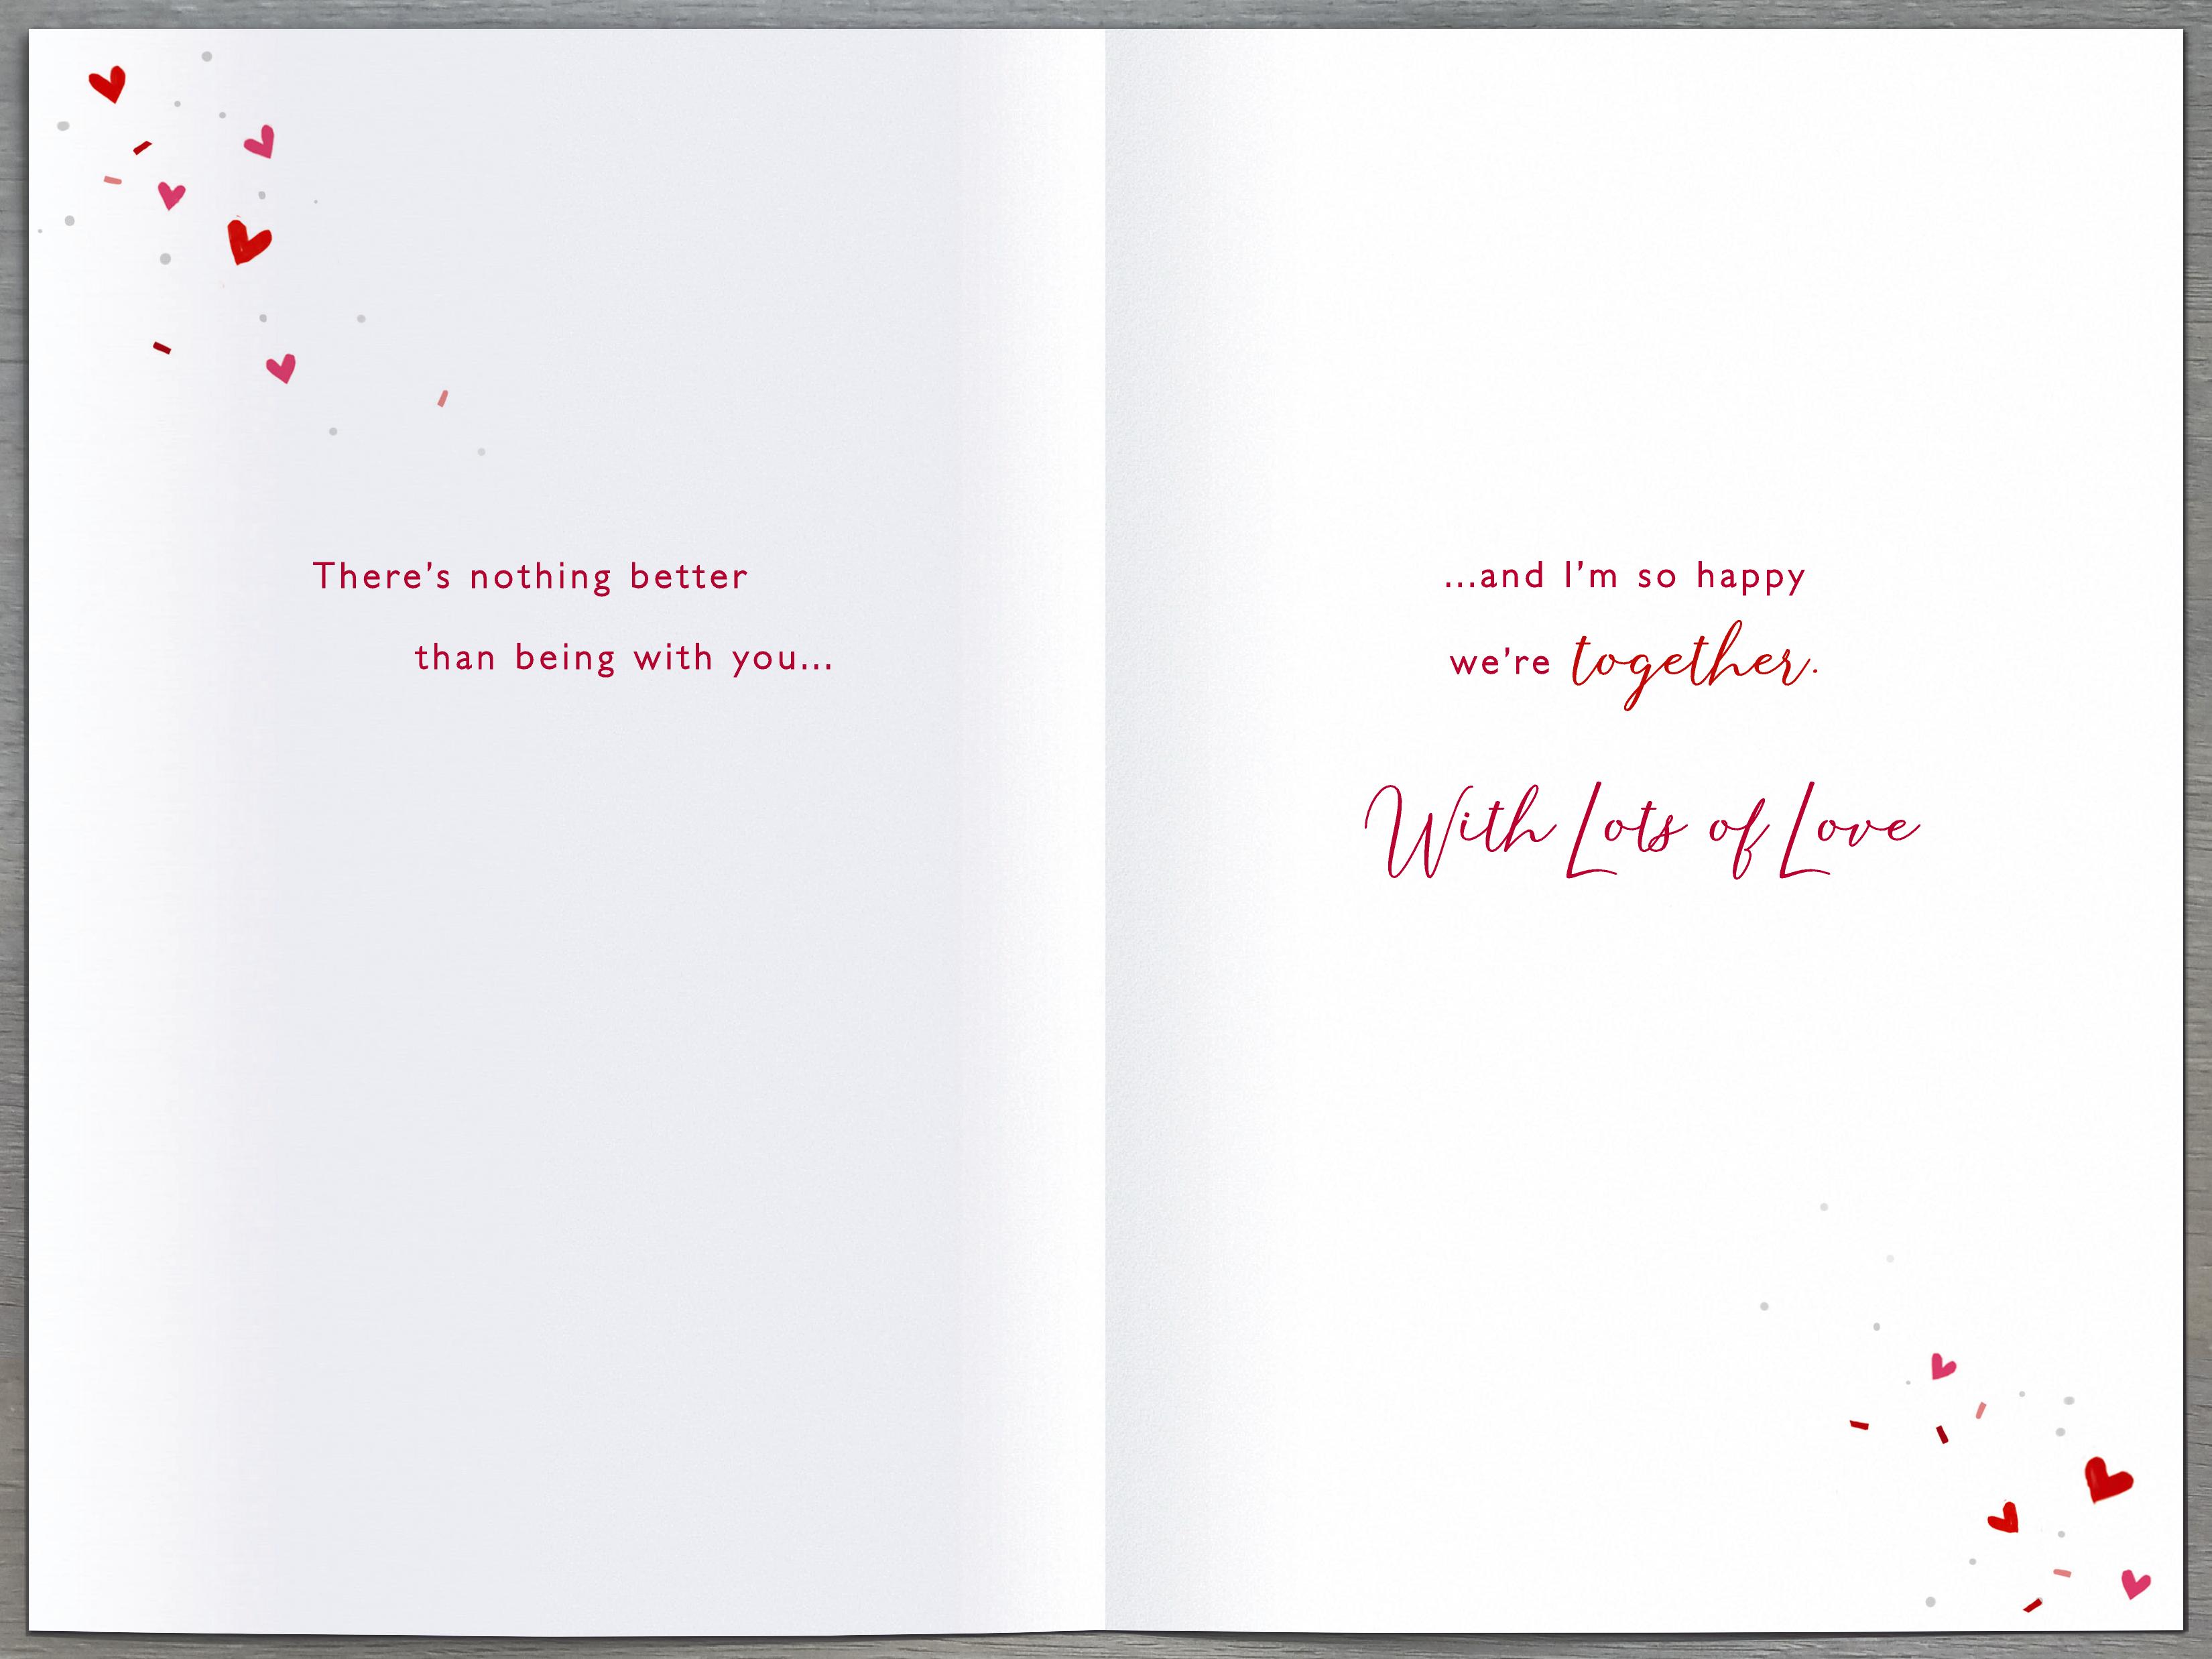 There's nothing better
than being with you...
...and I'm so happy
we're together.
With Lots of Love